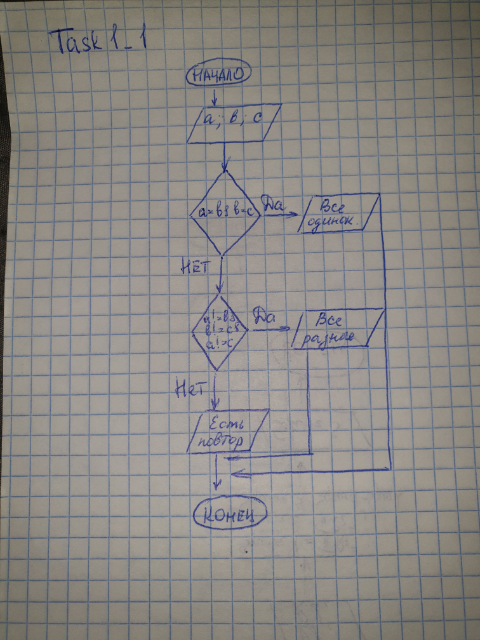 Task 1_1
НАЧАЛО
a; b; c
a=b & b=c
Да
Все
одинак
НЕТ
a!=b &
b!=c &
a!=c
Да
Все
разные
Нет
Есть
повтор
КОНЕЦ